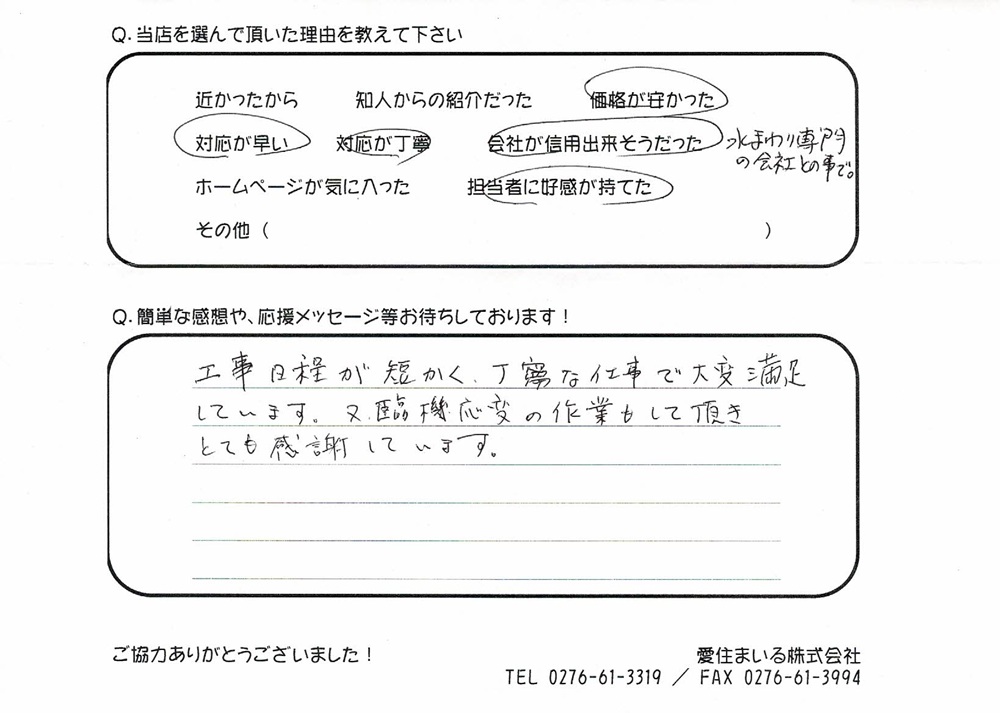 Q. 当店を選んで頂いた理由を教えて下さい
近かったから 知人からの紹介だった 価格が安かった
対応が早い 対応が丁寧 会社が信用出来そうだった 水まわり専門
の会社との事で。
ホームページが気に入った 担当者に好感が持てた
その他（ ）
Q. 簡単な感想や、応援メッセージ等お待ちしております！
工事日程が短かく、丁寧な仕事で大変満足
しています。又、臨機応変の作業もして頂き
とても感謝しています。
ご協力ありがとうございました！ 愛住まいる株式会社
TEL 0276-61-3319 ／ FAX 0276-61-3994